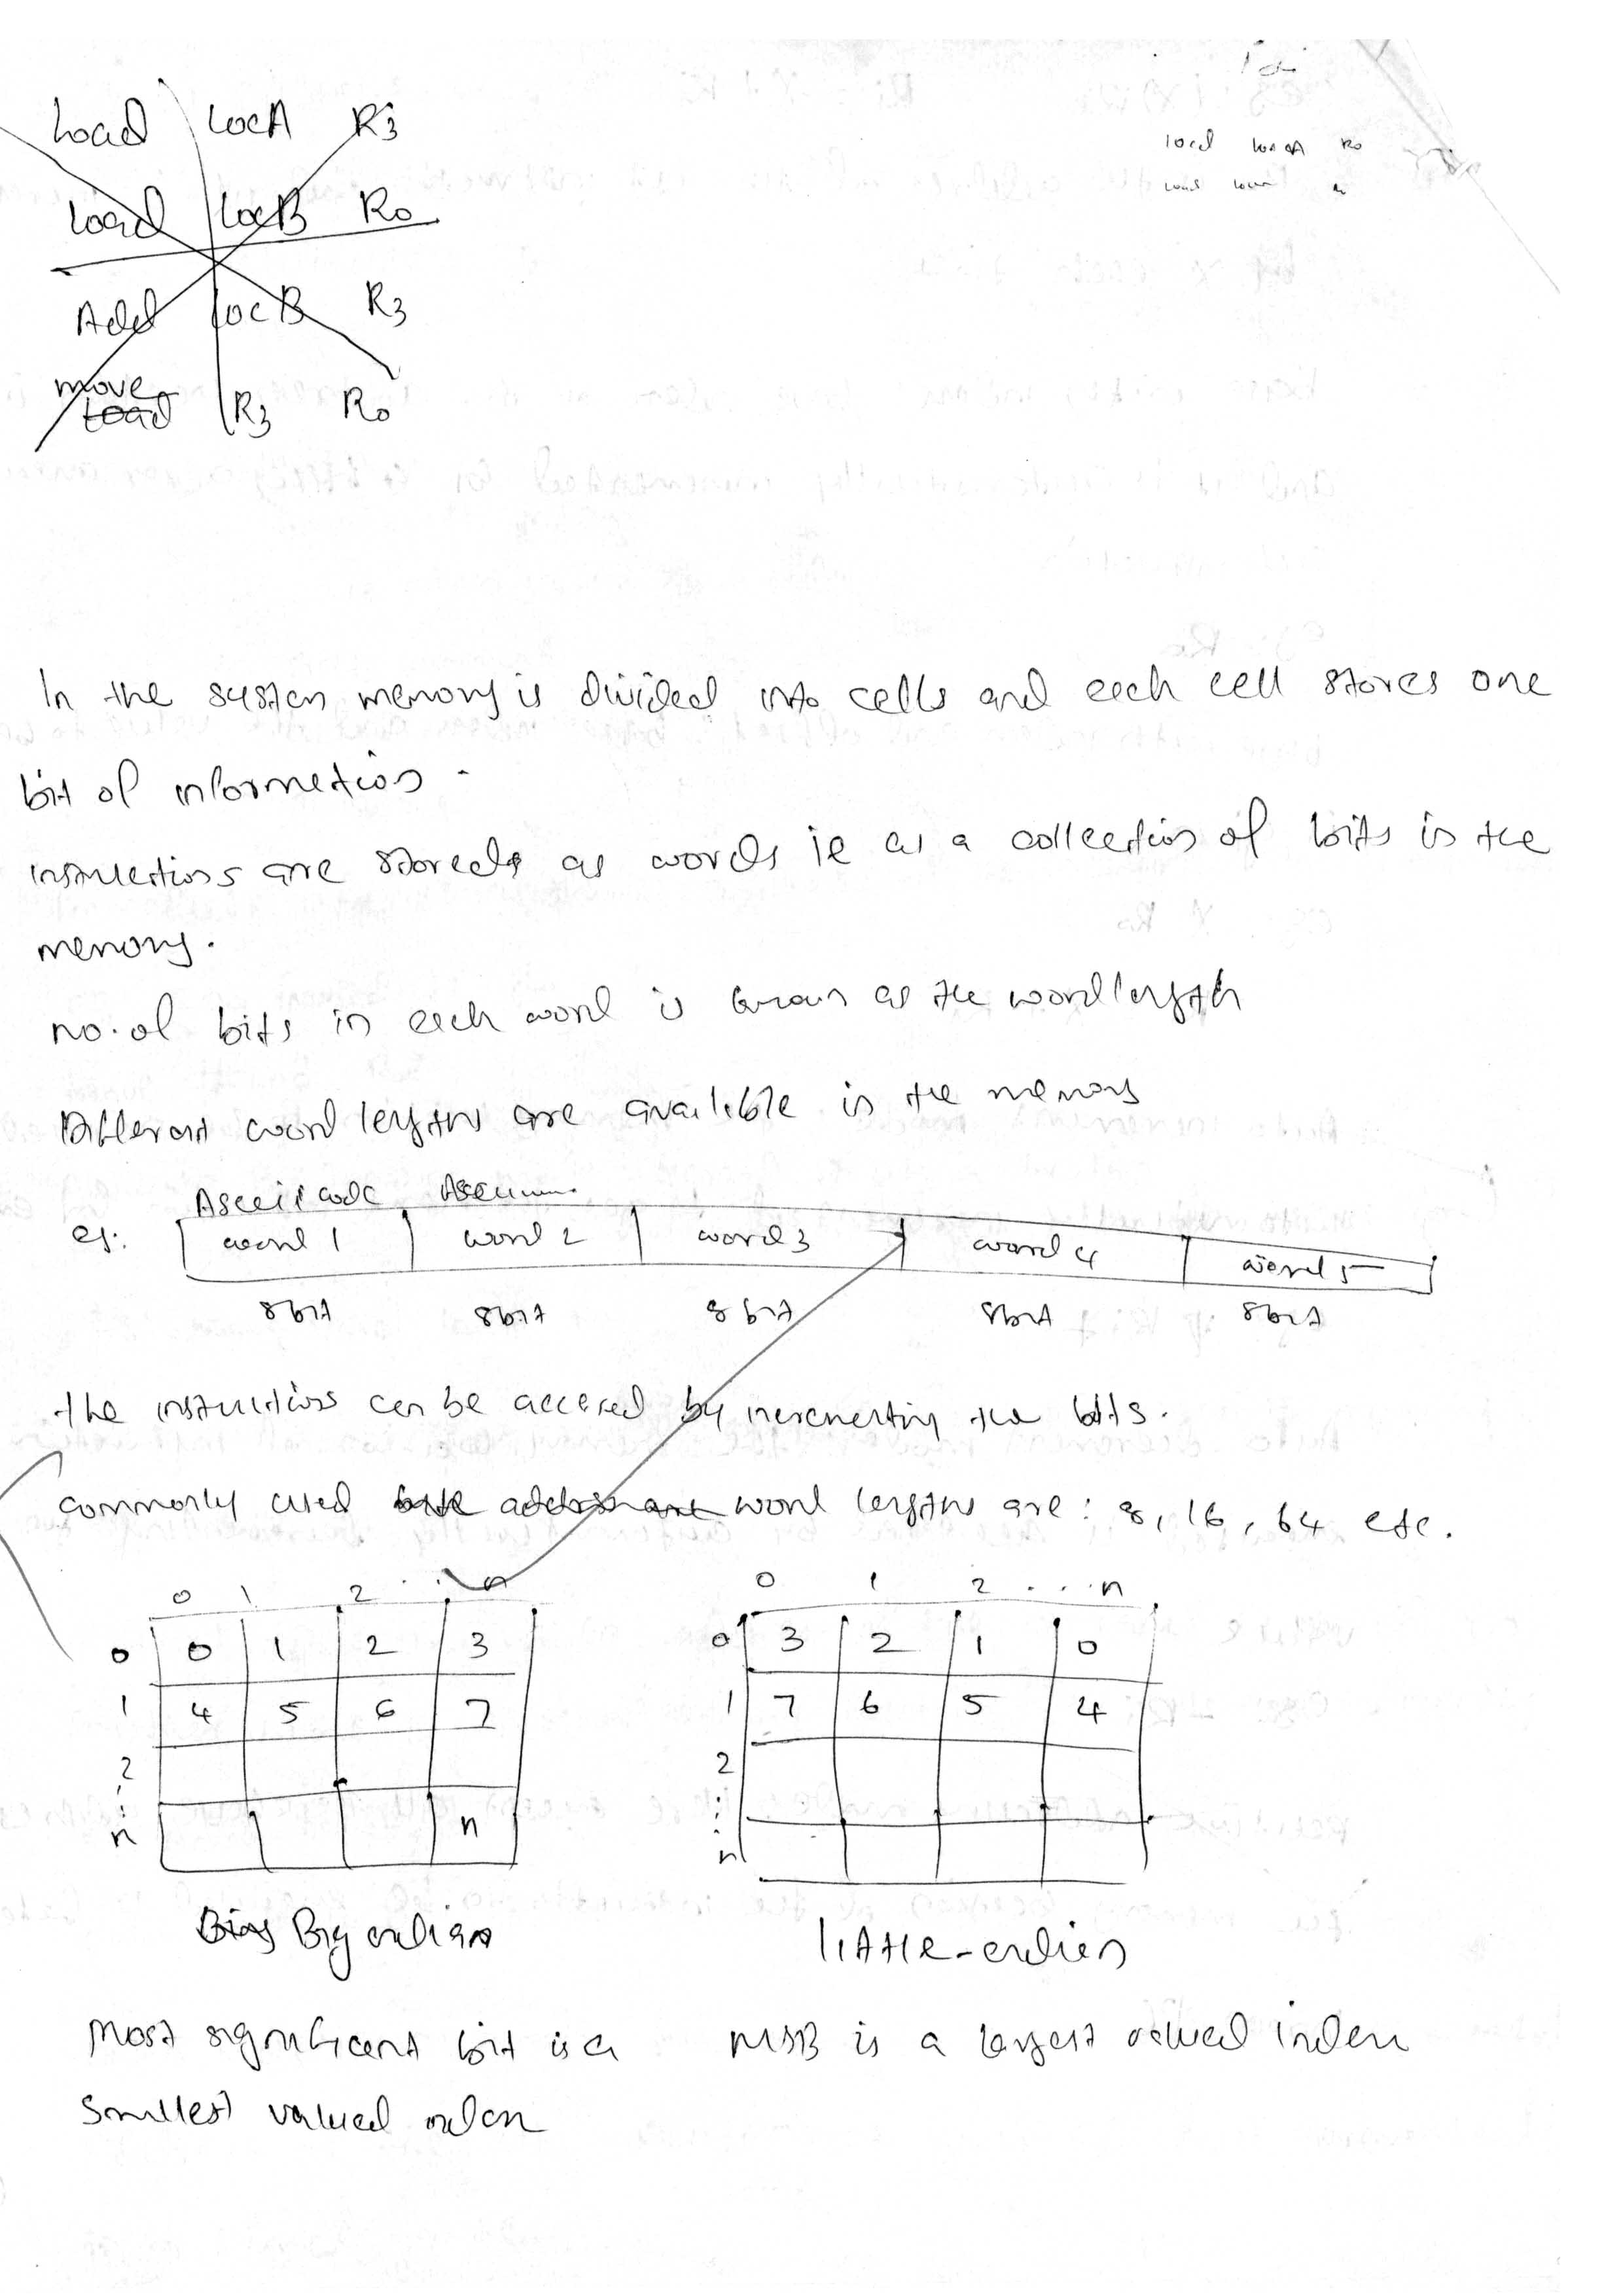 Load LocA R3
Load LocB R0
Add LocB R3
move Load R3 R0
load R0
In the system memory is divided into cells and each cell stores one
bit of information.
instructions are stored as words ie as a collection of bits in the
memory.
no. of bits in each word is known as the word length
Different word lengths are available in the memory
Asceii code
eg: word 1 word 2 word 3 word 4 word 5
8 bit 8 bit 8 bit 8 bit 8 bit
the instructions can be accesed by incrementing the bits.
commonly used word lengths are: 8, 16, 64 etc.
0 1 2 .. n
0 0 1 2 3
1 4 5 6 7
2
n n
Big endian
0 1 2 ... n
0 3 2 1 0
1 7 6 5 4
2
n
little-endian
Most significant bit is a
smallest valued index
MSB is a largest valued index